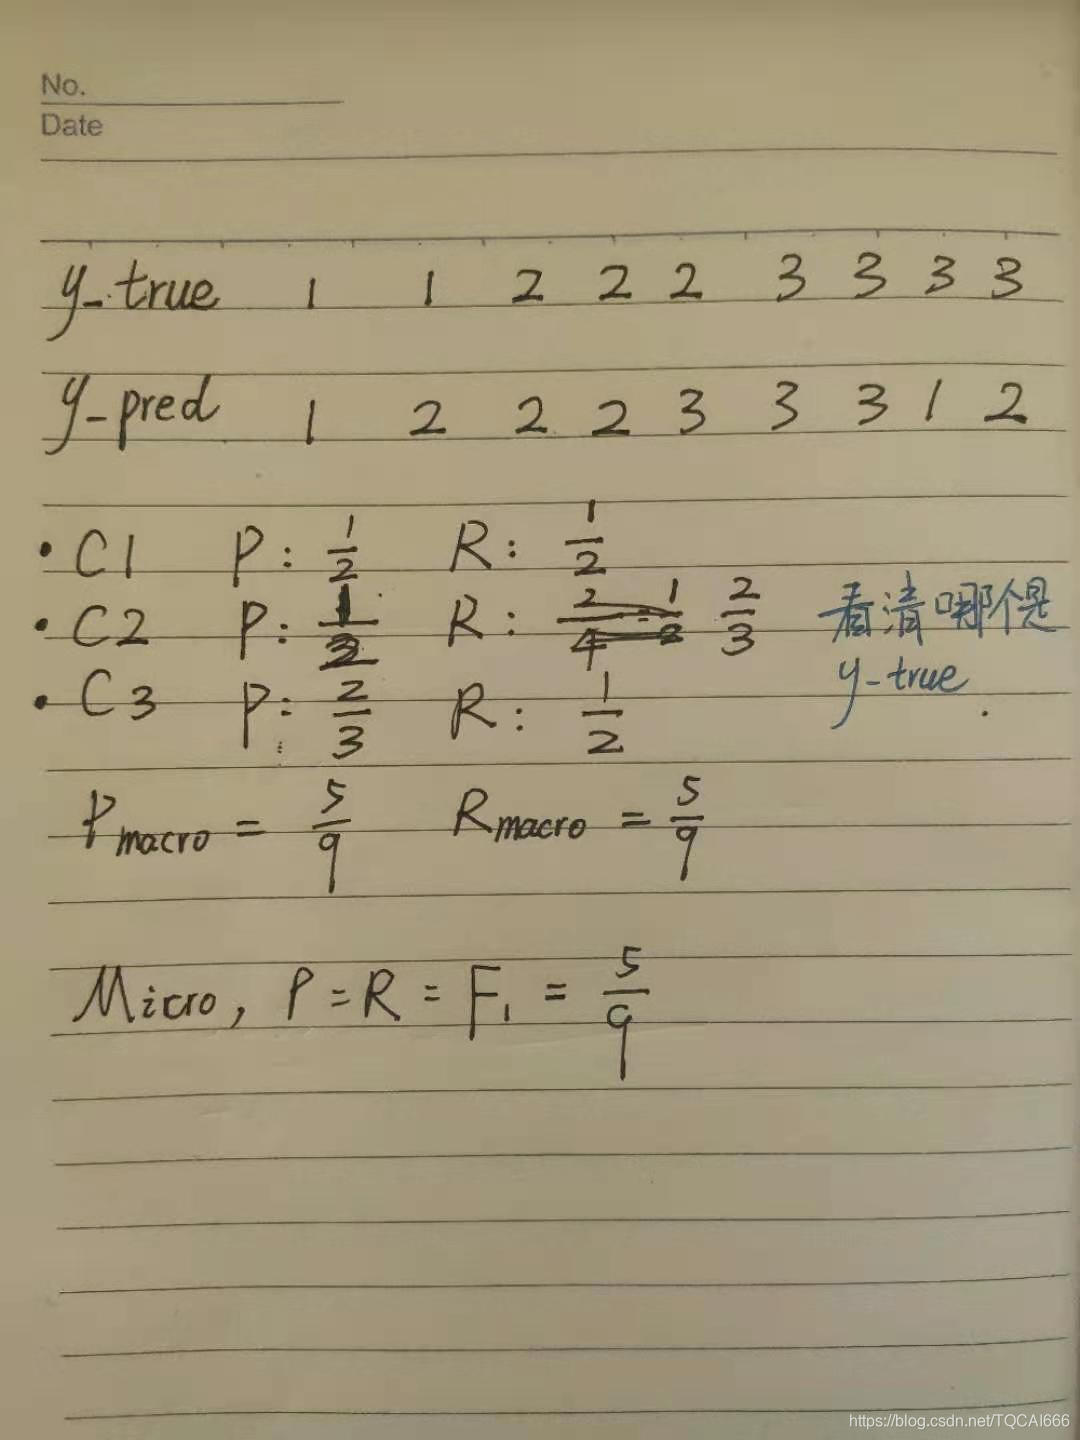 No.
Date
y_true 1 1 2 2 2 3 3 3 3
y_pred 1 2 2 2 3 3 3 1 2
• C1 P: 1/2 R: 1/2
• C2 P: 1/2 R: 2/4 = 1/2 2/3 看清哪个是
y_true.
• C3 P: 2/3 R: 1/2
Pmacro = 5/9 Rmacro = 5/9
Micro, P = R = F1 = 5/9
https://blog.csdn.net/TQCAI666